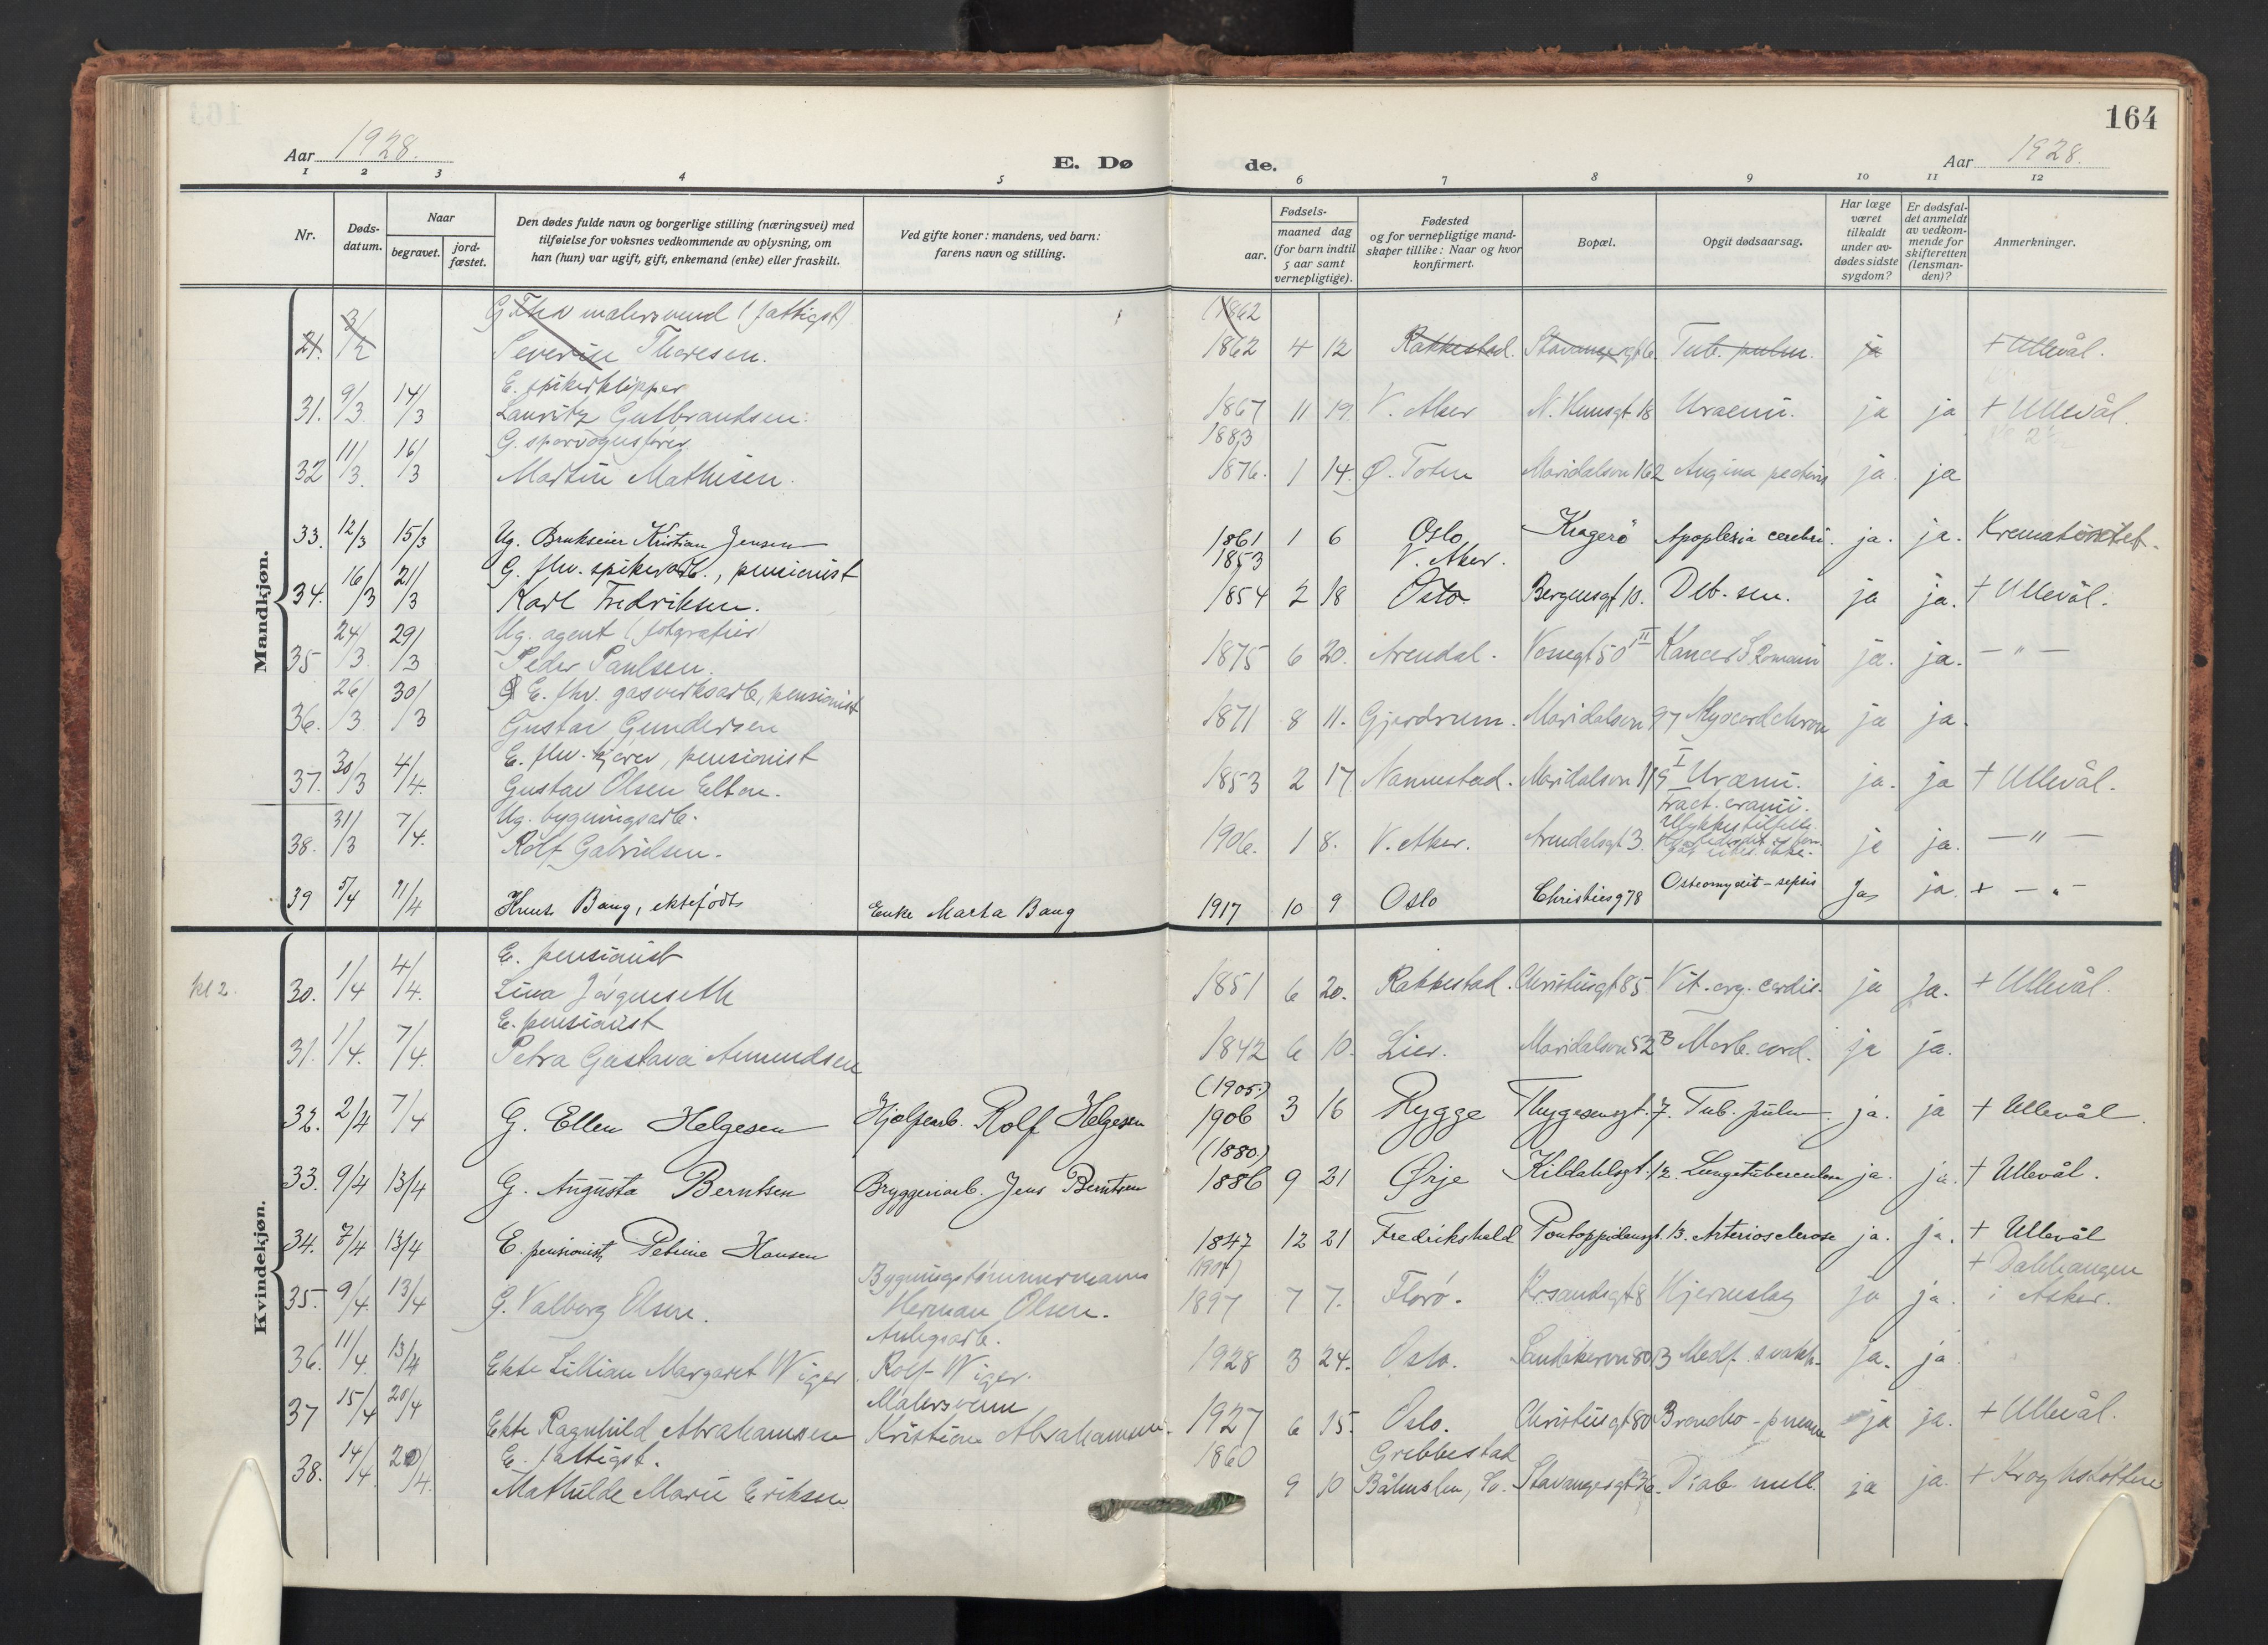 164
Aar 1928.
E. Dø
de.
Aar 1928.
1 2 3 4 5 6 7 8 9 10 11 12
Nr.
Døds-
datum.
Naar
begravet.
jord-
fæstet.
Den dødes fulde navn og borgerlige stilling (næringsvei) med
tilføielse for voksnes vedkommende av oplysning, om
han (hun) var ugift, gift, enkemand (enke) eller fraskilt.
Ved gifte koner: mandens, ved barn:
farens navn og stilling.
Fødsels-
aar.
maaned dag
(for barn indtil
5 aar samt
vernepligtige).
Fødested
og for vernepligtige mand-
skaper tillike: Naar og hvor
konfirmert.
Bopæl.
Opgit dødsaarsag.
Har læge
været
tilkaldt
under av-
dødes sidste
sygdom?
Er dødsfal-
det anmeldt
av vedkom-
mende for
skifteretten
(lensman-
den)?
Anmerkninger.
Mandkjøn.
G. malersvend (fattigst) 1862
21. 3/2 Severin Thoresen. 1862 4 12 Rakkestad. Stavangergt 6. Tub. pulm. ja + Ullevål.
E. spikerklipper
31. 9/3 14/3 Lauritz Gulbrandsen. 1867 11 19. V. Aker N. Huusgt. 18 Uraemi. ja ja + Ullevål.
G. sporvognsfører 1883
32 11/3. 16/3 Martin Mathisen. 1876. 1 14. Ø. Toten Maridalsvn 162 Angina pectoris ja. ja
33. 12/3 15/3 Ug. Brukseier Kristian Jensen 1861 1 6 Oslo Kragerö Apoplexia cerebri. ja. ja. Krematoriet.
G. fhv. spikerarb., pensionist 1853 V. Aker.
34. 16/3 21/3 Karl Fredriksen. 1854 2 18 Oslo Bergensgt 10. Deb. sen. ja ja. + Ullevål.
Ug. agent (fotografier)
35 24/3. 29/3 Peder Paulsen. 1875 6 20. Arendal. Vossegt 50 II Kancer S Romani ja. ja. — " —
E. fhv. gasverksarb., pensionist
36. 26/3 30/3 Gustav Gundersen 1871 8 11. Gjerdrum. Maridalsvn 97 Myocard chron ja ja.
E. fhv. kjører, pensionist
37. 30/3 4/4. Gustav Olsen Elton. 1853 2 17 Nannestad. Maridalsvn 119 I Uræmi. ja. ja + Ullevål.
Ug. bygningsarb. Fract. cranii.
Ulykkestilfelle.
38. 31/3 7/4. Rolf Gabrielsen. 1906. 1 8. V. Aker. Arendalsgt 3. ja ja. — " —
39 5/4 11/4 Knut Bang, ektefødt Enke Marta Bang 1917 10 9 Oslo Christiesg 78 Osteomyelit – sepsis Ja ja. + — " —
Kvindekjøn.
E. pensionist
kl 2. 30. 1/4 4/4. Lina Jørgenseth 1851 6 20. Rakkestad. Christiesgt 85 Vit. org. cordis. ja Ja. + Ullevål.
E. pensionist
31. 1/4. 7/4. Petra Gustava Amundsen 1842 6 10. Lier. Maridalsvn 52 B Morb. cord. ja ja.
(1905.)
32. 2/4 7/4 G. Ellen Helgesen Hjelpearb. Rolf Helgesen 1906 3 16 Rygge Thygesensgt. 7. Tub. pulm. ja. ja + Ullevål.
(1880.)
33. 9/4 13/4 G. Augusta Berntsen Bryggeriarb. Jens Berntsen 1886 9 21 Ørje Kildahlsgt. 12. Lungetuberculose ja. ja. + Ullevål.
34. 7/4 13/4 E. pensionist, Petrine Hansen 1847 12 21 Fredrikshald Pontoppidansgt. 13. Arteriosclerose ja. ja. + Ullevål
Bygningstømmermann + Dalhaugen
35. 9/4. 13/4 G. Valborg Olsen. Herman Olsen. 1897 7 7. Florø. Krsandsgt 8 Hjerneslag ja ja. i Asker.
Anlegsarb.
36. 11/4. 13/4 Ekte Lillian Margaret Wiger Rolf Wiger. 1928 3 24. Oslo. Sandakervn 80 B Medf. svakh. ja. ja
Malersvenn
37 15/4 20/4 Ekte Ragnhild Abrahamsen Kristian Abrahamsen. 1927 6 15. Oslo. Christiesgt 80 Broncho-pneum ja ja. + Ullevål.
E. fattigst. 1860 Grebbestad
38. 14/4. 20/4. Mathilde Marie Eriksen. 9 10 Båhuslen, Sv. Stavangergt 36. Diab. mell. ja ja. +